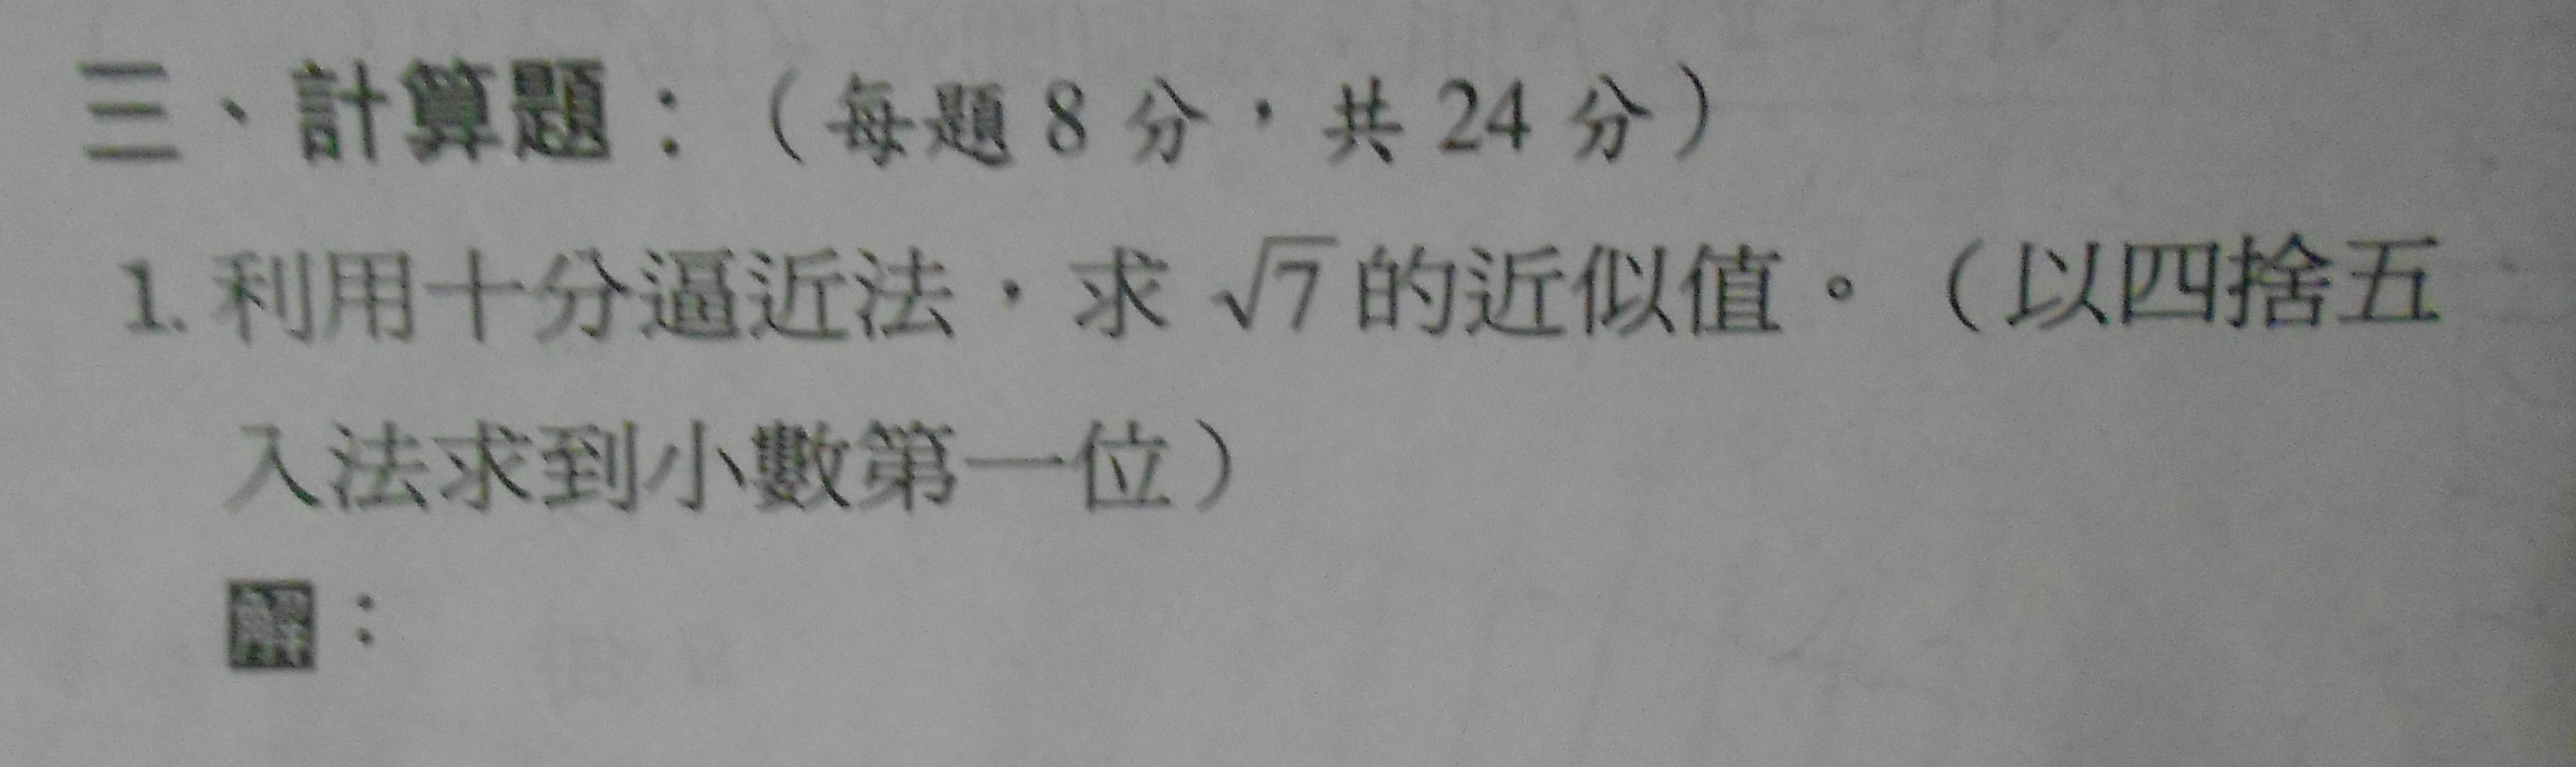 三、計算題：（每題 8 分，共 24 分）
1. 利用十分逼近法，求 √7 的近似值。（以四捨五
入法求到小數第一位）
解：